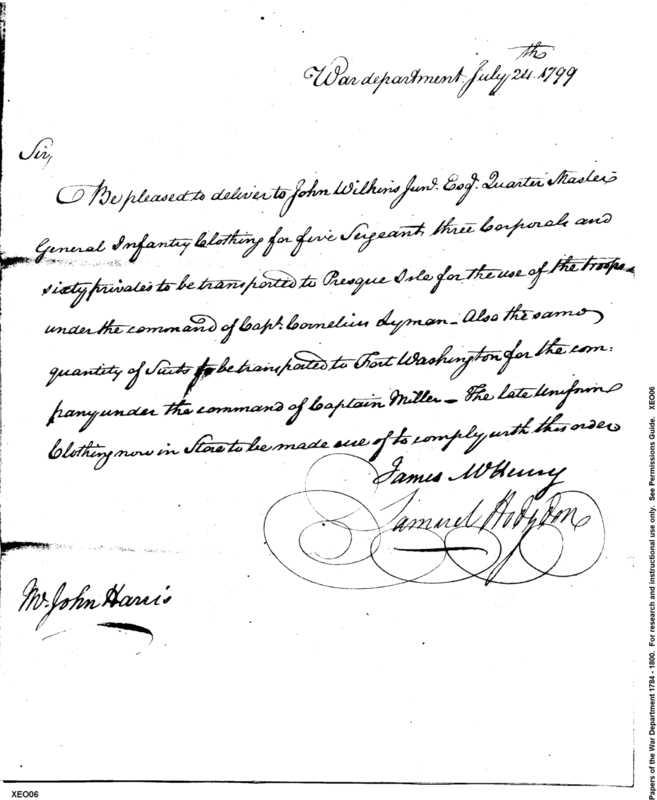 War department July 24.th 1799
Sir,
Be pleased to deliver to John Wilkins Jun.r Esq.r Quarter Master
General Infantry Clothing for five Sergeants three Corporals and
sixty privates to be transported to Presque Isle for the use of the troops
under the command of Cap.t Cornelius Lyman _ Also the same
quantity of Suits to be transported to Fort Washington for the com:
pany under the command of Captain Miller _ The late Uniform
Clothing now in Store to be made use of to comply with this order
James McHenry
Samuel Hodgdon
Mr. John Harris
XEO06
Papers of the War Department 1784 - 1800. For research and instructional use only. See Permissions Guide. XEO06